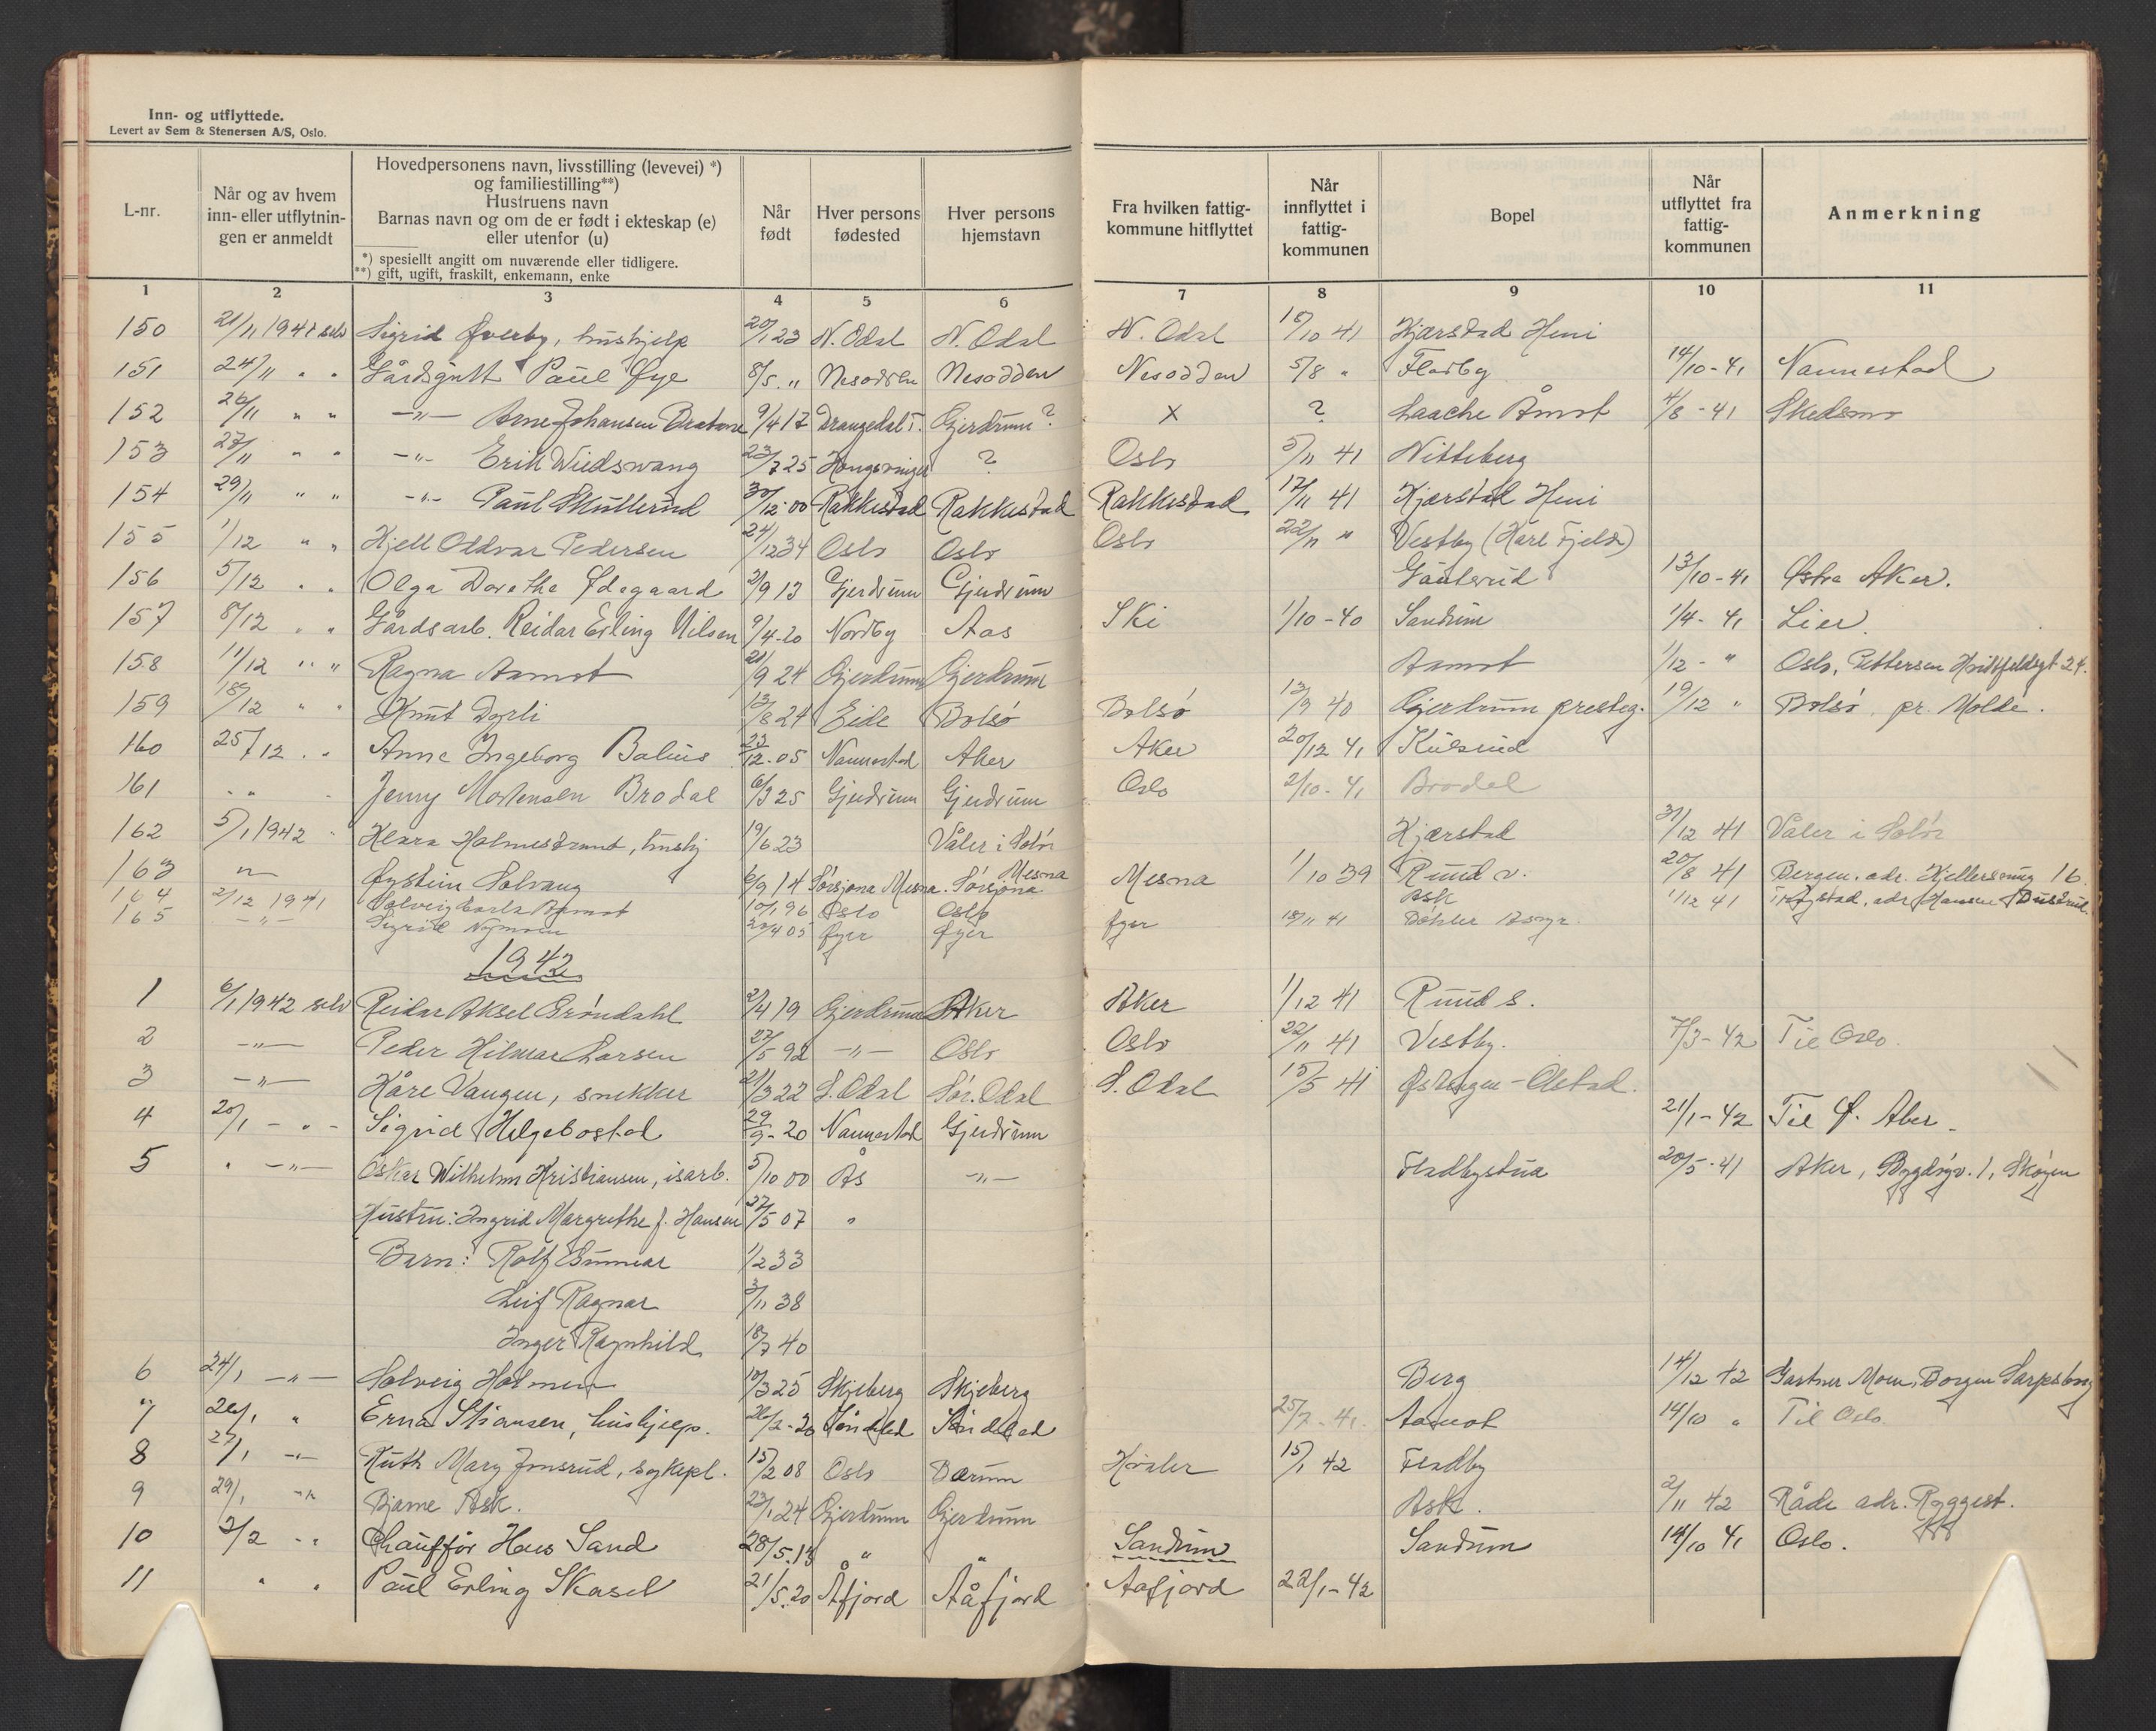 Inn- og utflyttede.
Levert av Sem & Stenersen A/S, Oslo.
L-nr.
Når og av hvem inn- eller utflytnin- gen er anmeldt
Hovedpersonens navn, livsstilling (levevei) *) og familiestilling**) Hustruens navn Barnas navn og om de er født i ekteskap (e) eller utenfor (u)
*) spesiellt angitt om nuværende eller tidligere.
**) gift, ugift, fraskilt, enkemann, enke
Når født
Hver persons fødested
Hver persons hjemstavn
Fra hvilken fattig- kommune hitflyttet
Når innflyttet i fattig- kommunen
Bopel
Når utflyttet fra fattig- kommunen
Anmerkning
1 2 3 4 5 6 7 8 9 10 11
150 21/11 1941 selv Sigrid Øverby, hushjelp 20/1 23 N. Odal N. Odal N. Odal 18/10 41 Kjærstad Heni
151 24/11 " " Gårdsgutt Paul Øye 8/5 " Nesodden Nesodden Nesodden 5/8 " Fladby 14/10-41 Nannestad
152 26/11 " " -"- Arne Johansen 9/4 17 Drangedal T. Gjerdrum? X ? Laache Åmot 4/8-41 Skedsmo
153 27/11 " " -"- Erik Wiedswang 23/7 25 Kongsvinger ? Oslo 5/11 41 Nitteberg
154 29/11 " " -"- Paul Skullerud 30/12-00 Rakkestad Rakkestad Rakkestad 17/11 41 Kjærstad Heni
155 1/12 " " Kjell Oddvar Pedersen 24/12 34 Oslo Oslo Oslo 22/11 " Vestby (Karl Fjeld)
156 5/12 " " Olga Dorothe Ødegaard 2/9 13 Gjerdrum Gjerdrum Gaulerud 13/10-41 Østre Aker.
157 8/12 " " Gårdsarb. Reidar Erling Nilsen 9/4-20 Nordby Aas Ski 1/10-40 Sandum 1/4-41 Lier
158 11/12 " " Ragna Aamot 21/9 24 Gjerdrum Gjerdrum Aamot 1/12-" Oslo, Pettersen Hvitfeldtsgt 24.
159 18/12 " " Knut Dyrli 13/8 24 Eide Bolsø Bolsø 13/9 40 Gjerdrum presteg. 19/12 " Bolsø pr. Molde.
160 25/12 " " Anne Ingeborg Balius 23/12-05 Nannestad Aker Aker 20/12 41 Kulsrud
161 " " Jenny Mortensen Brodal 6/3 25 Gjerdrum Gjerdrum Oslo 2/10-41 Brodal
162 5/1 1942 " Klara Holmestrand, hushj 19/6 23 Våler i Solør Kjærstad 31/12 41 Våler i Solør
163 " Øystein Solvang 6/9 14 Sørsjona Mesna. Sørsjona Mesna Mesna 1/10 39 Ruud v. 20/8 41 Bergen. adr.
164 2/12 1941 Solveig Aamot 10/1 96 Oslo Oslo Ask 1/12 41 adr. Hansen
165 -"- Sigrid Nyman 4 05 Øyer Øyer Øyer 18/11 41
1942
1 6/1 1942 selv Reidar Aksel Grøndahl 2/4 19 Gjerdrum Aker Aker 1/12 41 Ruud s.
2 -"- Peder Hilmar Larsen 27/5 92 -"- Oslo Oslo 22/11 41 Vestby. 7/3-42 Til Oslo.
3 -"- Kåre Vangen, snekker 21/3 22 S. Odal Sør. Odal S. Odal 15/5 41 Østengen-Olstad.
4 20/1 -"- Sigrid Helgebostad 29/9-20 Nannestad Gjerdrum 21/1-42 Til Ø. Aker
5 " -"- Oskar Wilhelm Kristiansen, isarb. 5/10 00 Ås -"- Fladbystua 20/5-41 Aker, Bygdøyv. 1, Skøyen
Hustru: Ingrid Margrethe f. Hansen 27/5 07 "
Barn: Rolf Gunnar 1/2 33
Leif Ragnar 3/11 38
Inger Ragnhild 18/7 40
6 24/1 -"- Solveig Holmen 10/3 25 Skjeberg Skjeberg Berg 14/12 42 Gartner Moen, Borgen Sarpsborg
7 26/1 " Erna Stiansen, hushjelp. 26/2-20 Søndeled Søndeled 25/7-41 Aamot 14/10 " Til Oslo.
8 27/1 -"- Ruth Mary Jonsrud, sykepl. 15/2 08 Oslo Bærum Hvaler 15/1 42 Fladby
9 29/1 -"- Bjarne Ask. 23/1 24 Gjerdrum Gjerdrum Ask. 2/11 42 Råde adr. Ryggest.
10 3/2 -" Chauffør Hans Sand 28/5.18 " " Sandum Sandum 14/10 41 Oslo.
11 " " Paul Erling Skasel 21/5.20 Åfjord Aåfjord Aafjord 22/1-42